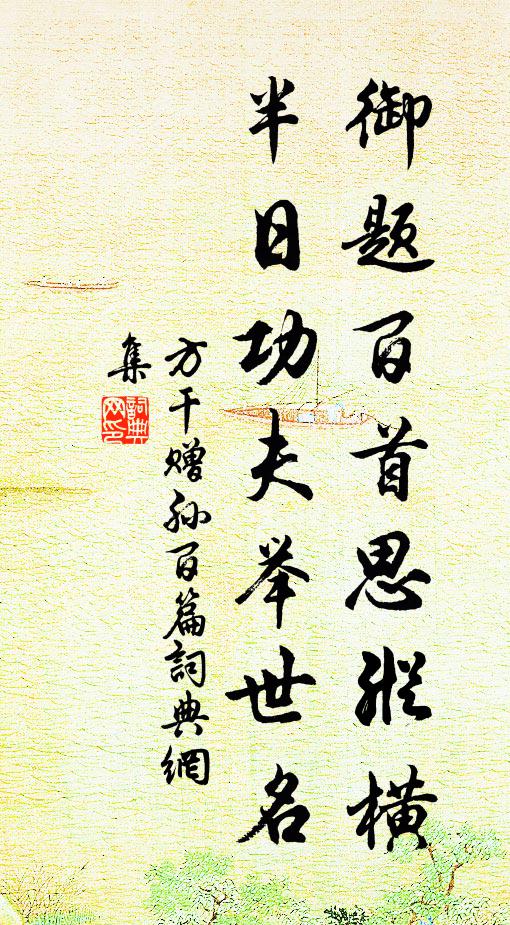 御题百首思縱横
半日功夫举世名
方干赠孙百篇詞典網
集
詞典網印